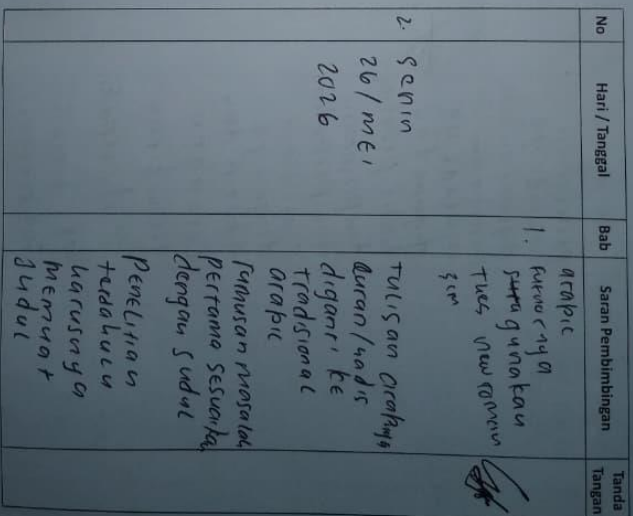 No Hari / Tanggal Bab Saran Pembimbingan Tanda Tangan
arabic
gunakan
1.
2. Senin
26/MEI
2026
Tulisan
Quran/hadis
diganti ke
tradisional
arabic
rumusan masalah
pertama sesuaikan
dengan judul
Penelitian
terdahulu
harusnya
memuat
Judul